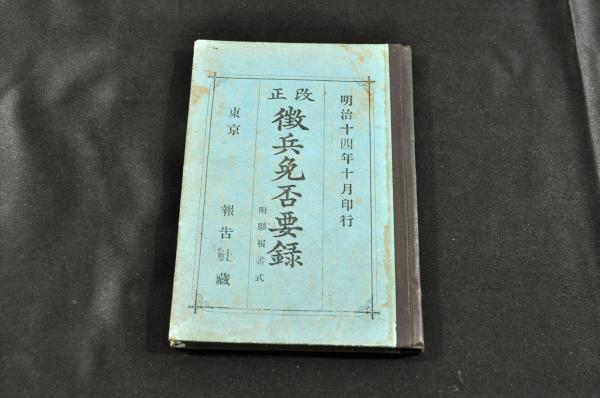 明治十四年十月印行
改正
徴兵免否要録
附願届書式
東京
報告社蔵